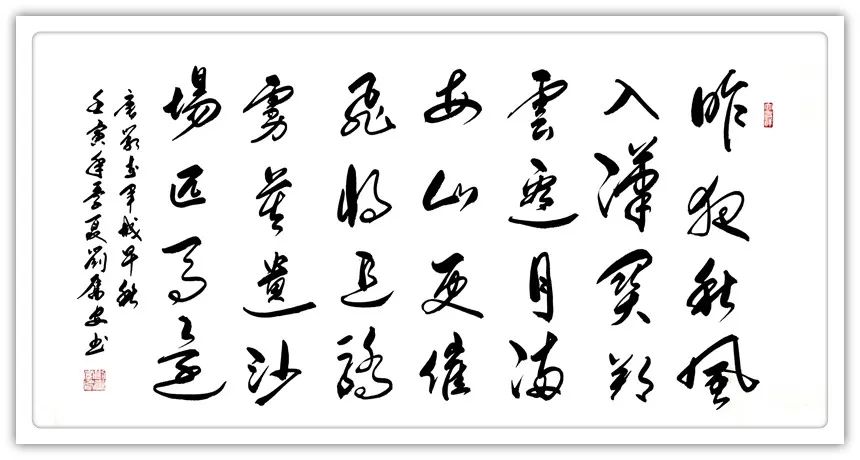 昨夜秋風
入漢關朔
雲邊月滿
西山更催
飛將追驕
虜莫遣沙
場匹馬還
唐嚴武軍城早秋
壬寅年孟夏劉安書